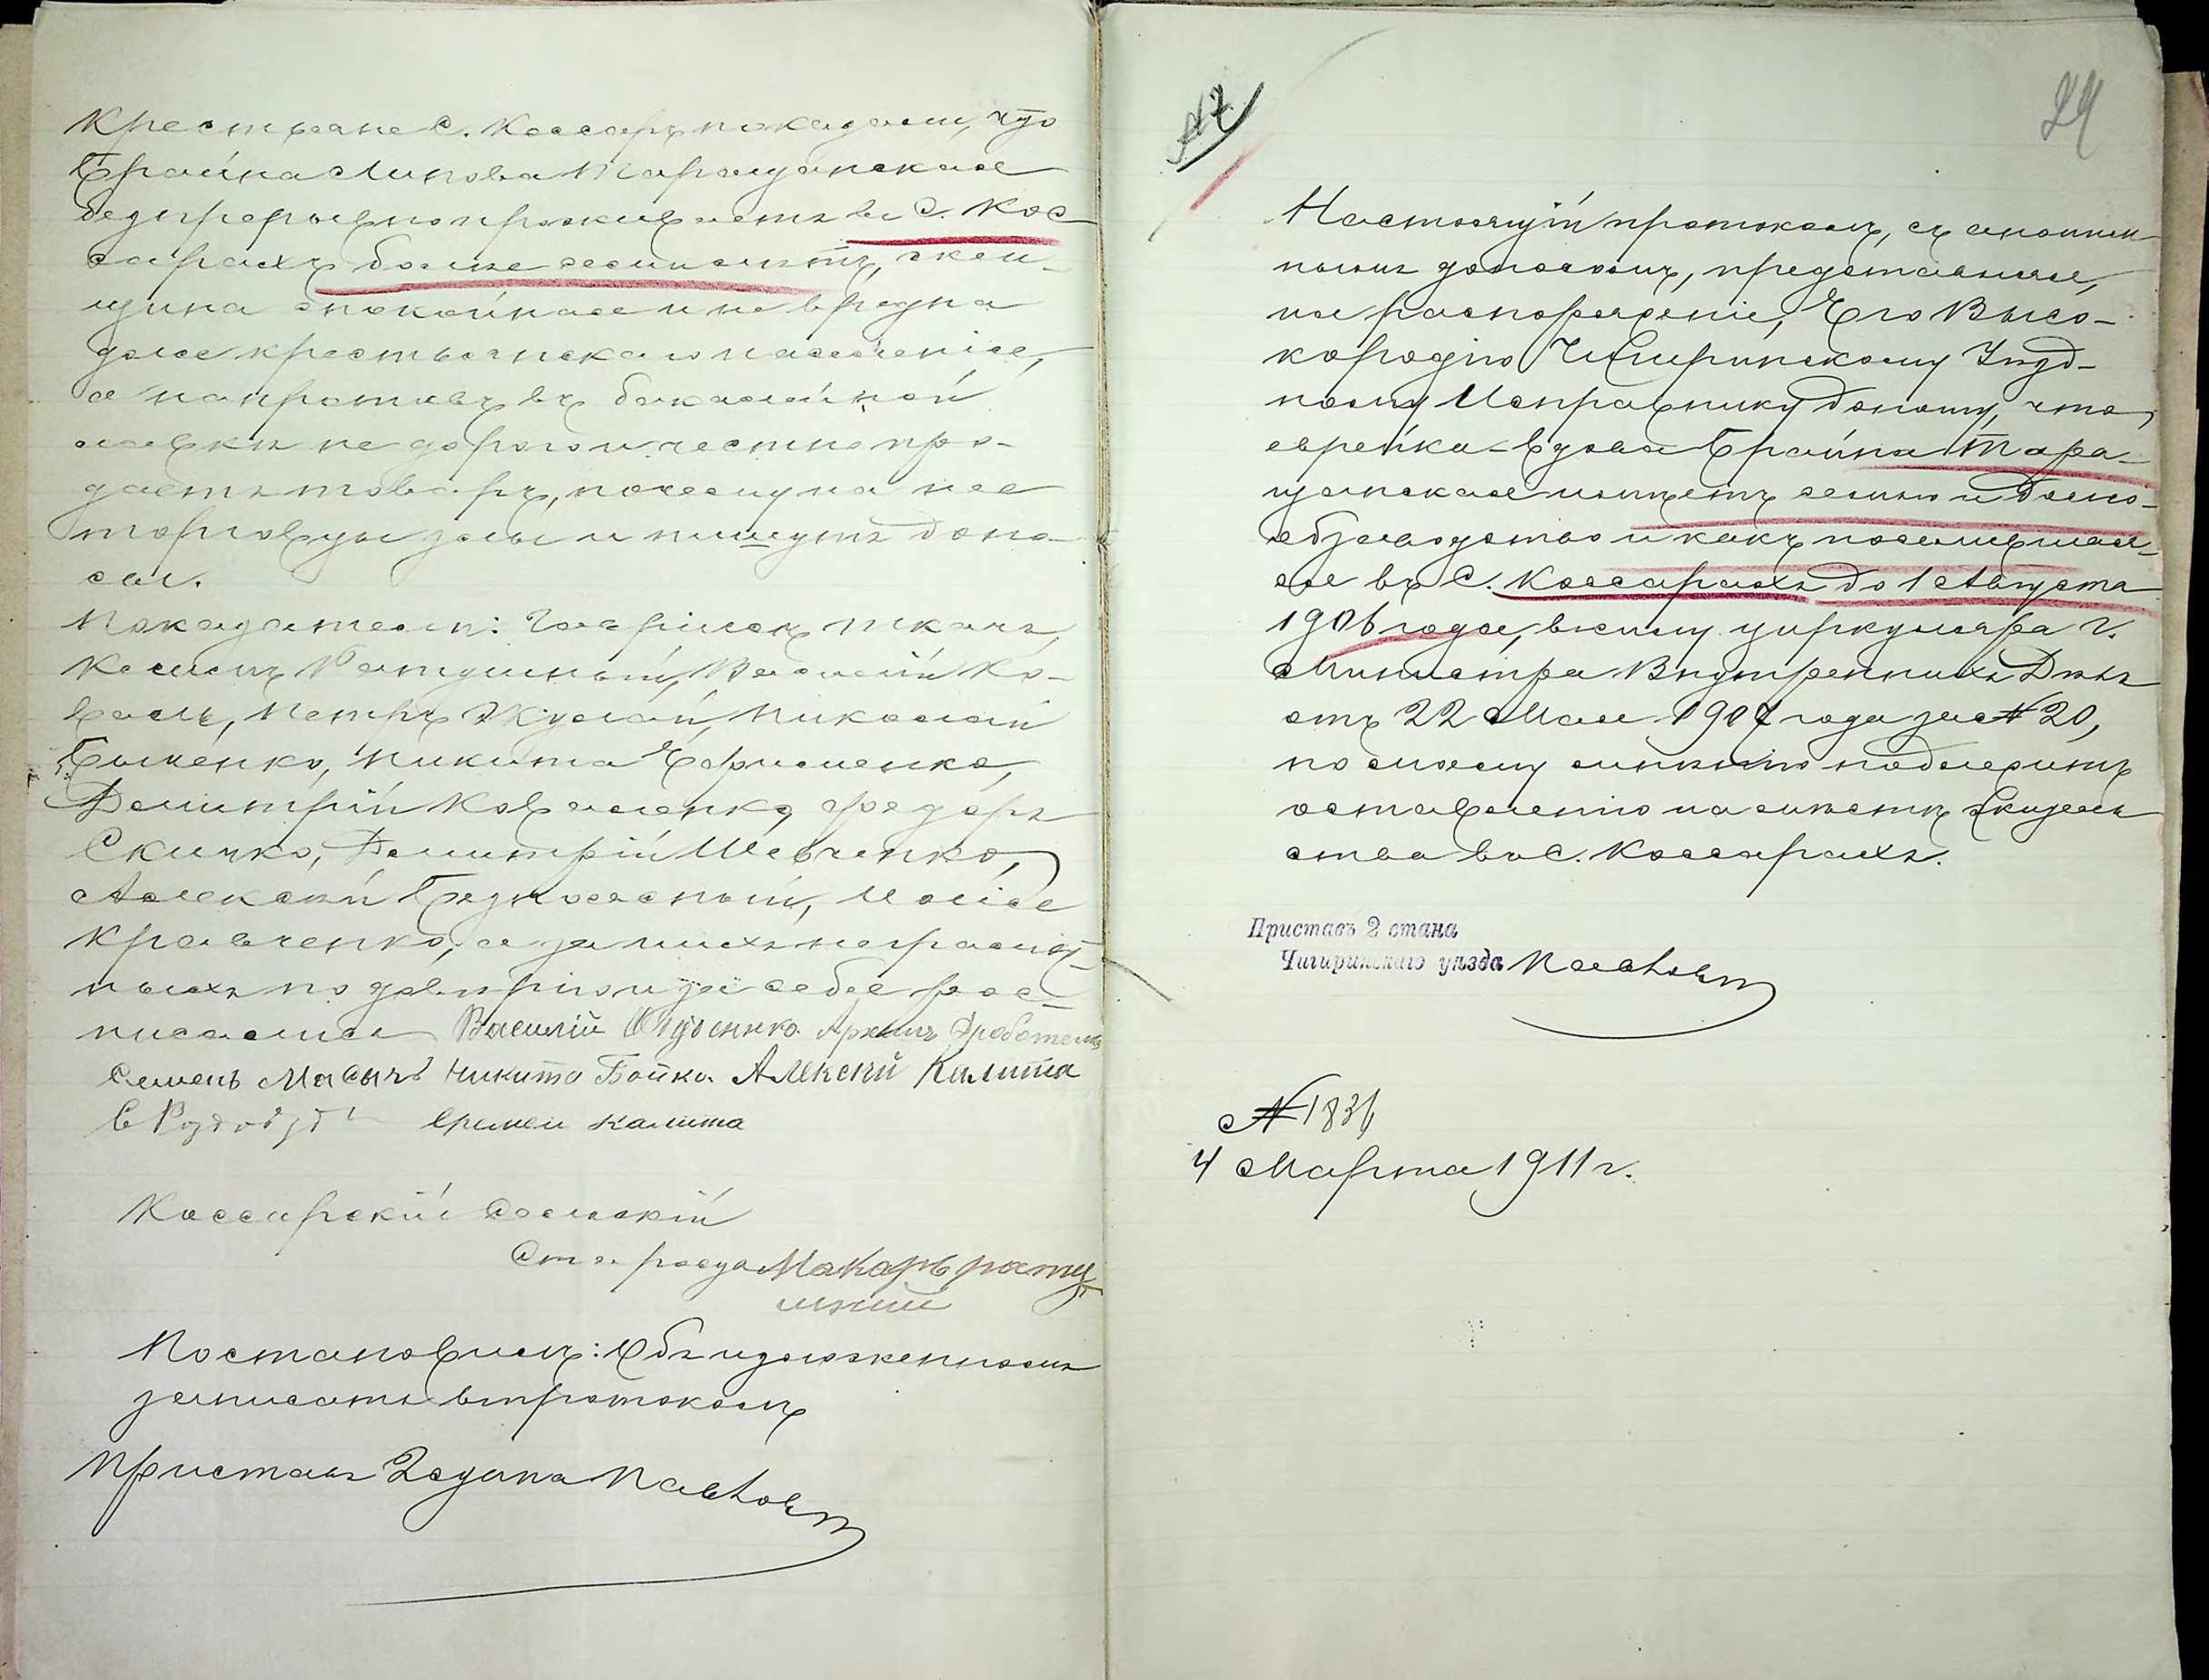 Крестьяне с. Коссаръ показали, что
Брайна Минова Таращанская
безпрерывно проживаетъ въ с. Кос-
сарахъ более семи летъ, жен-
щина спокойная и не вредна
для крестьянскаго населенія,
а напротивъ въ бакалейной
лавкѣ не дорого и честно про-
даетъ товаръ, почему на нее
торговцы злы и пишутъ доно-
сы.
Показатели: Гавріилъ Ткачъ,
Космъ Ратушный, Василій Ко-
валь, Петръ Жулай, Николай
Быченко, Никита Ефименко,
Димитрій Коваленко, Федоръ
Скичко, Димитрій Шевченко,
Алексѣй Бедноясный, Моісе
Кравченко, а за нихъ неграмот-
ныхъ по довѣрію и за себя рос-
писались Василій Архипъ Дроботенко
Семенъ Масычъ Никита Бойко. Алексѣй Калита
Еремеи Калита
Коссарскій Сельскій
Староста Макаръ рату
шный
Постановилъ: Объ изложенномъ
записать въ протоколъ
Приставъ 2 стана
№ 7
24
Настоящій протоколъ, съ аноним
нымъ доносомъ, представляя,
на распоряженіе, Его Высо-
кородію Чигиринскому Уѣзд-
ному Исправнику доношу, что,
еврейка-вдова Брайна Тара-
щанская имѣетъ семью и домо-
обзаводство и какъ поселившая-
ся въ с. Коссарахъ до 1 Августа
1906 года, в силу циркуляра г.
Министра Внутреннихъ Дѣлъ
отъ 22 Мая 1907 года за № 20,
по моему мнѣнію подлежитъ
оставленію на мѣстѣ жидель
ства въ с. Коссарахъ.
Приставъ 2 стана
Чигиринскаго уѣзда
№ 1836
4 Марта 1911 г.